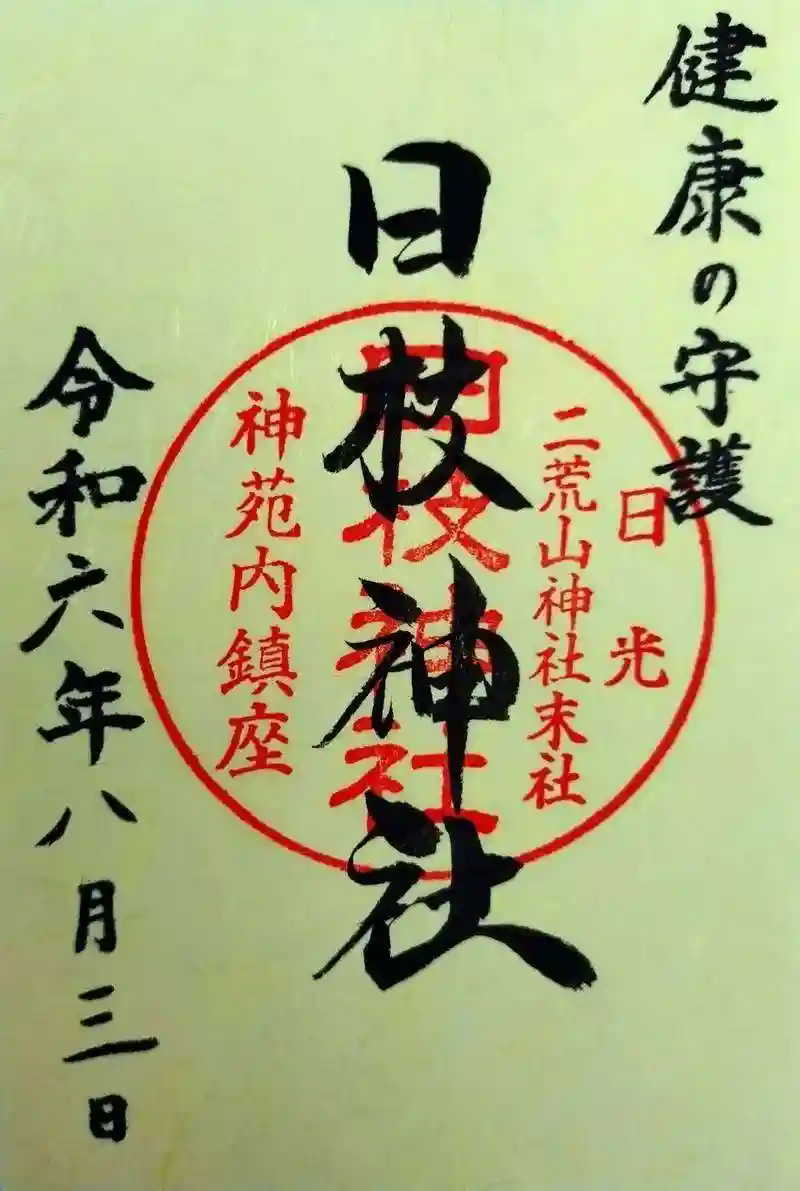 健康の守護
日光
二荒山神社末社
日枝神社
日枝神社
神苑内鎮座
令和六年八月三日